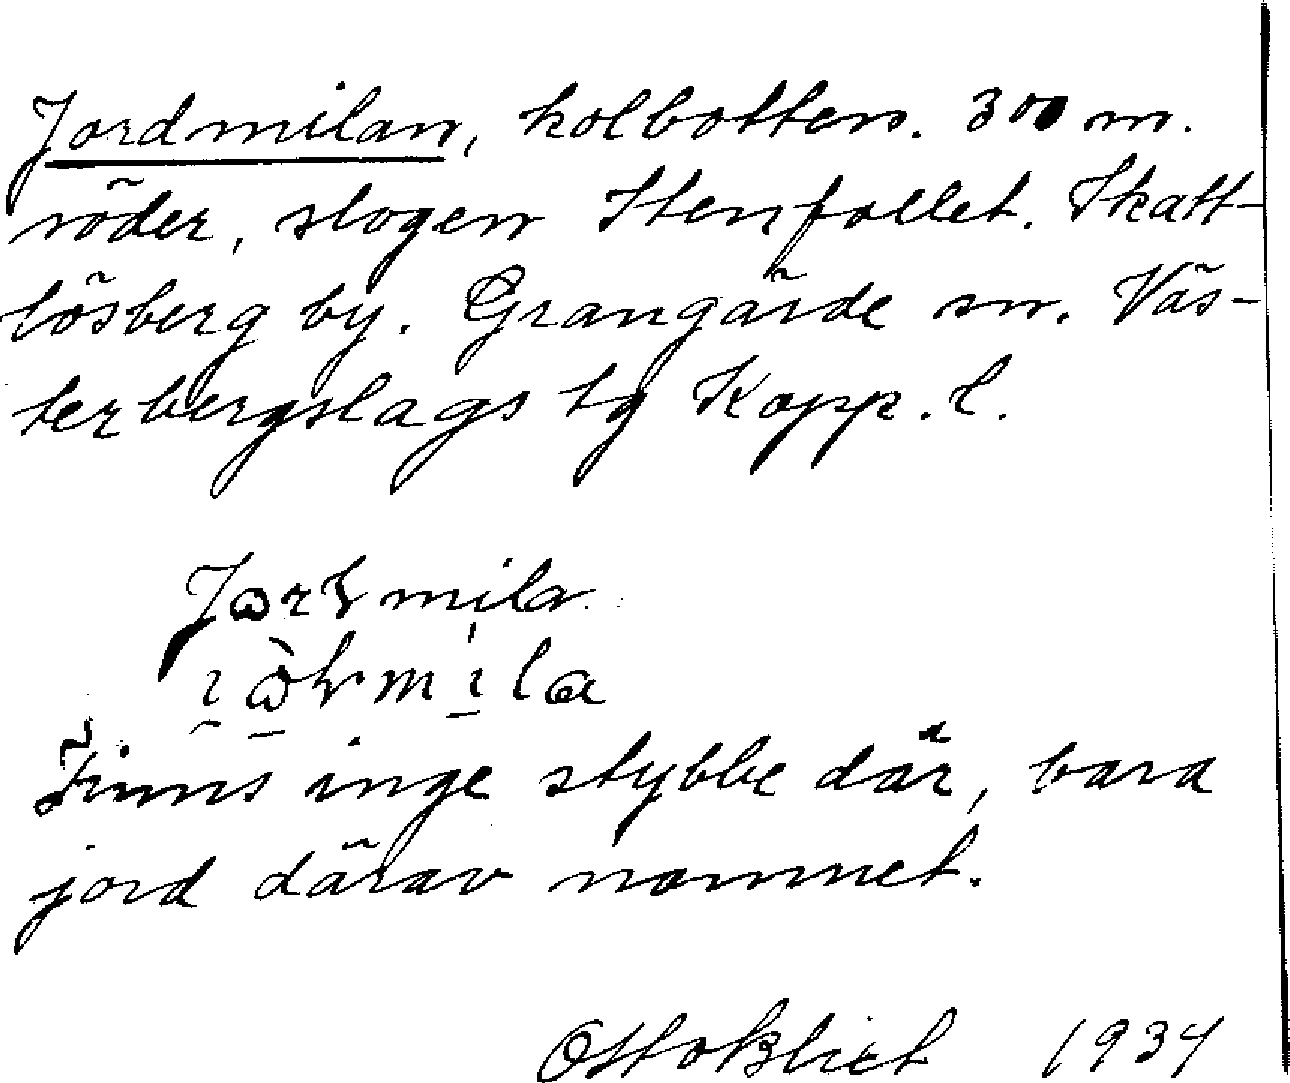 Jordmilan, kolbotten. 300 m.
söder, slogen Stenfallet. Skatt-
lösberg by. Grangärde sn. Väs-
terbergslags tg Kopp. l.
Finns inge stybbe där, bara
jord därav namnet.
Otto Blixt 1934